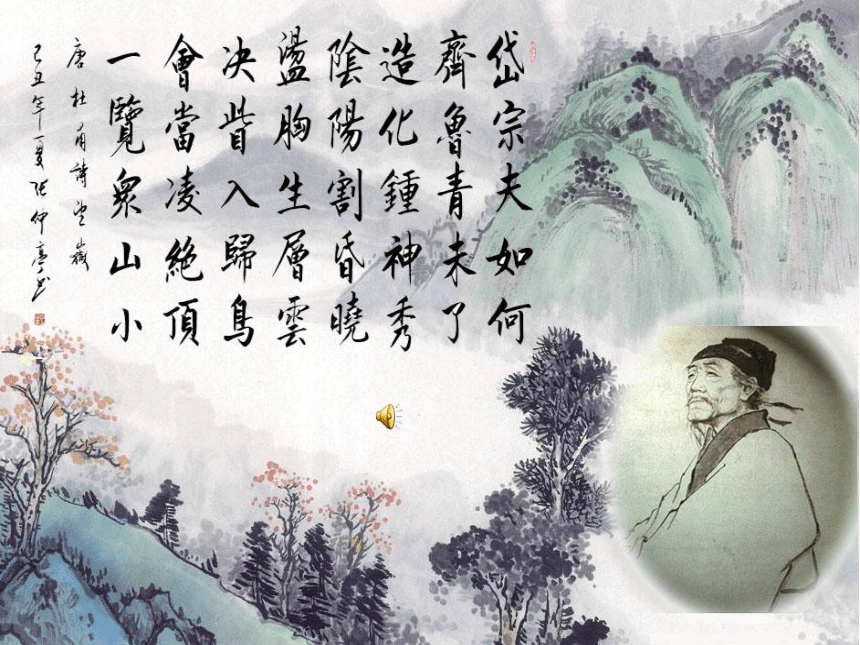 岱宗夫如何
齊魯青未了
造化鍾神秀
陰陽割昏曉
盪胸生層雲
决眥入歸鳥
會當凌絶頂
一覽衆山小
唐杜甫詩望嶽
己丑年夏张仲亭书